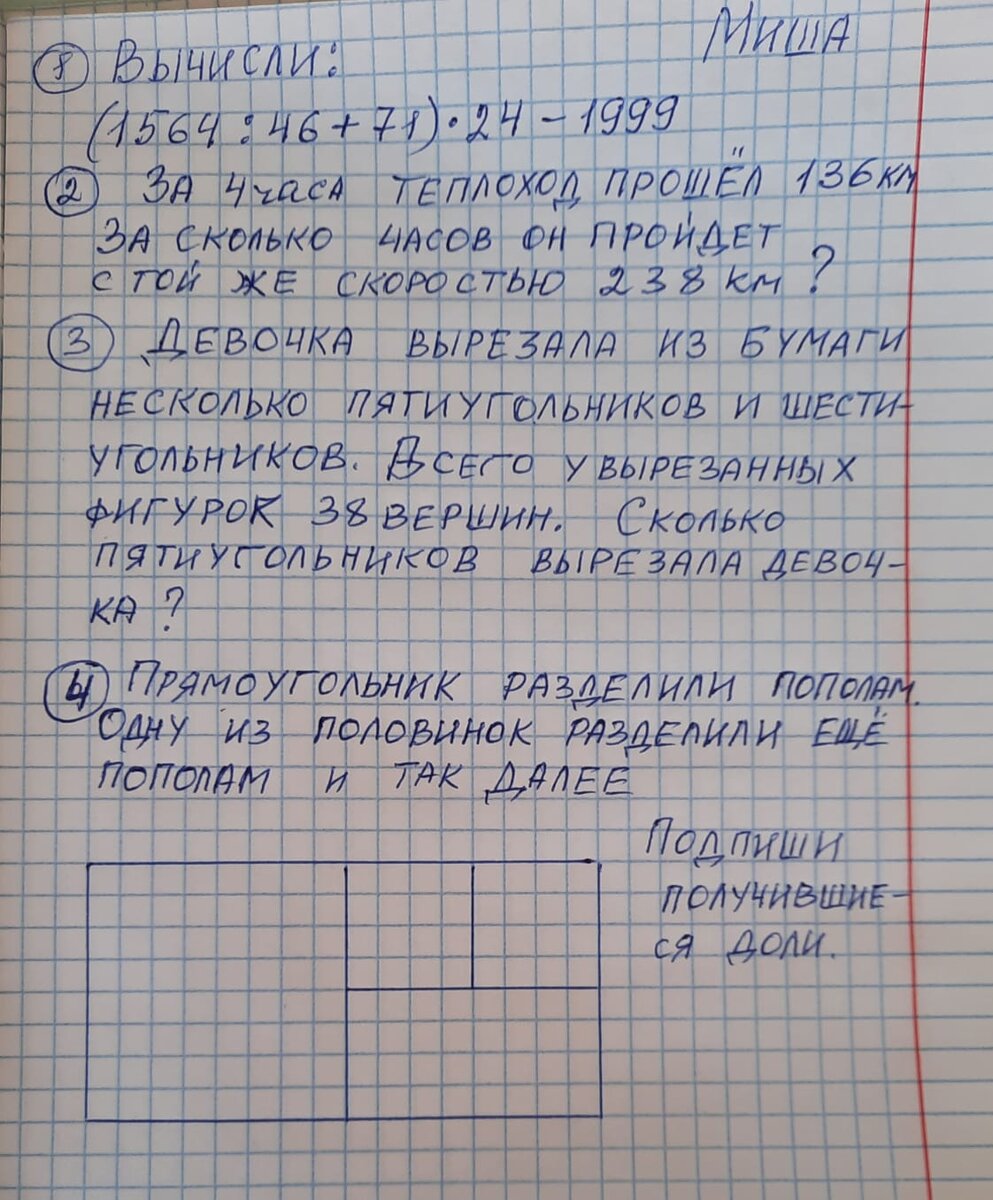 Миша
① Вычисли:
(1564 : 46 + 71) · 24 - 1999
② За 4 часа теплоход прошёл 136 км
За сколько часов он пройдет
с той же скоростью 238 км ?
③ Девочка вырезала из бумаги
несколько пятиугольников и шести-
угольников. Всего у вырезанных
фигурок 38 вершин. Сколько
пятиугольников вырезала девоч-
ка ?
④ Прямоугольник разделили пополам.
Одну из половинок разделили ещё
пополам и так далее
Подпиши
получившие-
ся доли.